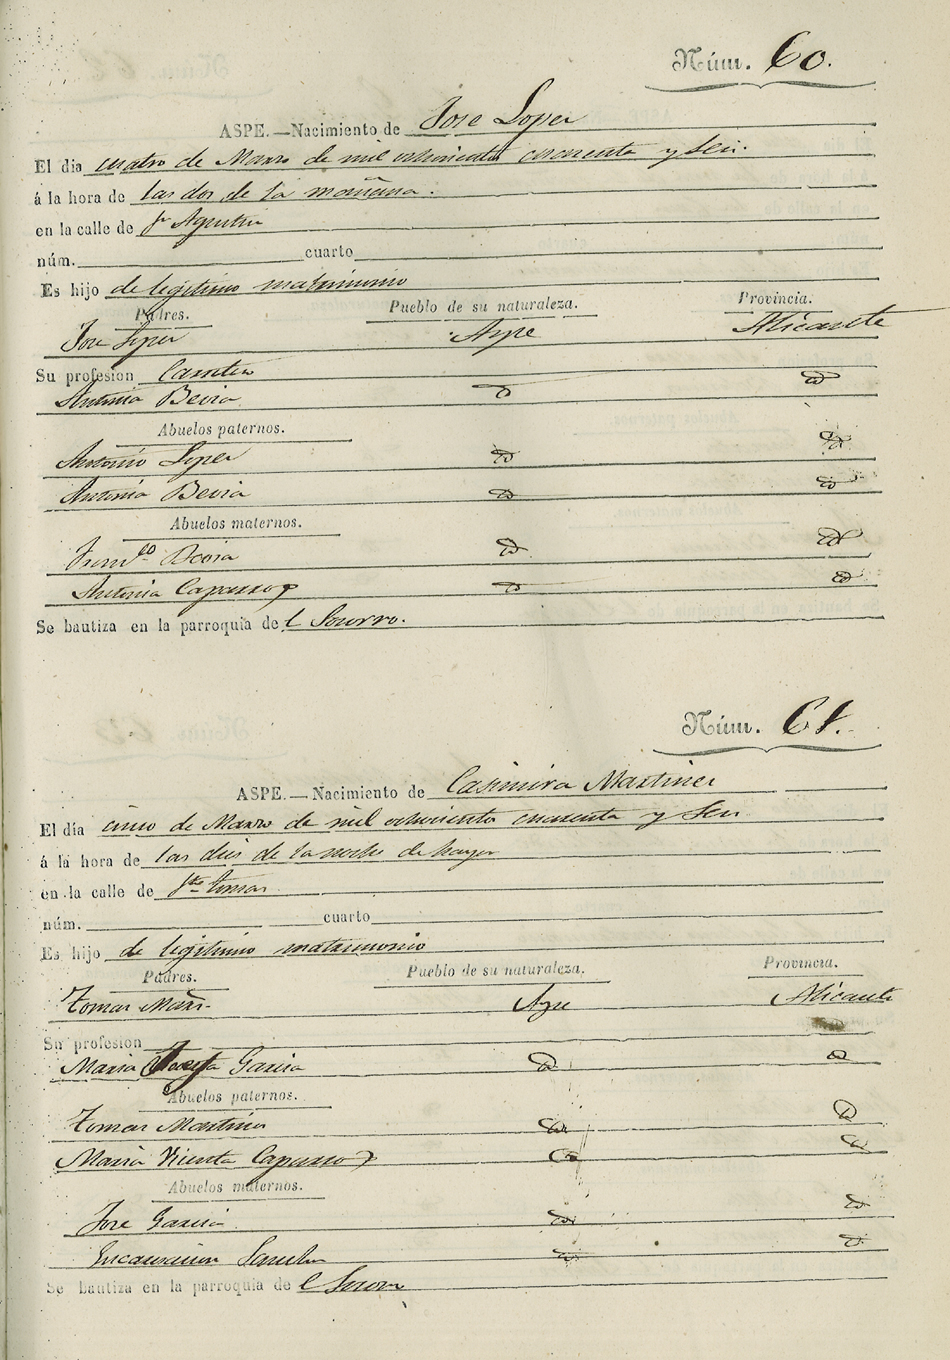 Núm. 60.
ASPE.—Nacimiento de Jose Loper
El dia cuatro de Marzo de mil ochocientos cuarenta y seis.
á la hora de las dos de la mañana.
en la calle de Sn Agustin
núm. cuarto
Es hijo de legitimo matrimonio
Padres. Pueblo de su naturaleza. Provincia.
Jose Loper Aspe Alicante
Su profesion
Antonia Bevia
Abuelos paternos.
Antonio Loper
Antonia Bevia
Abuelos maternos.
Bevia
Antonia Caparros
Se bautiza en la parroquia del Socorro.
Núm. 61.
ASPE.—Nacimiento de Casimira Martinez
El día cinco de Marzo de mil ochocientos cuarenta y seis
á la hora de las dies de la noche de
en la calle de Sto Tomas
núm. cuarto
Es hijo de legitimo matrimonio
Padres. Pueblo de su naturaleza. Provincia.
Tomas Marz. Aspe Alicante
Su profesion
Maria Garcia
Abuelos paternos.
Tomas Martinez
Maria Vicenta Caparros
Abuelos maternos.
Jose Garcia
Encarnacion Sanchez
Se bautiza en la parroquia del Socorro